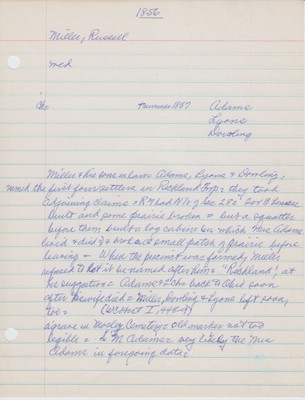 1856
Miller, Russell
med
Ch: + summer 1857 Adams
Lyons
Dowling
Miller & his sons in law Adams, Lyons & Dowling,
were the first four settlers in Richland Twp: they took
adjoining claims = R M had N ½ of Sec 28 = 2 or 3 houses
built and some prairie broken = but a squatter
before them built a log cabin in which Mrs Adams
lived & died & broke a small patch of prairie before
leaving = When the precinct was formed, Miller
refused to let it be named after him = "Richland" at
his suggestion = Adams & 2 chn back to Ohio soon
after his wife died = Miller, Dowling & Lyons left soon,
too =
a grave in Cemetery = old marker not too
legible = L M Adams = very likely the Mrs
Adams in foregoing data =